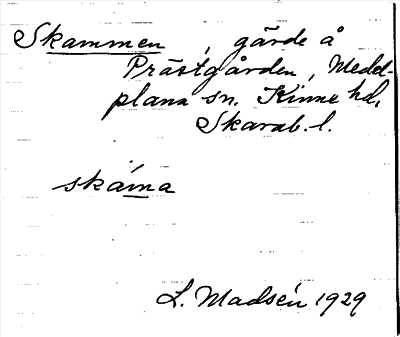 Skammen, gärde å
Prästgården, Medel-
plana sn. Kinne hd,
Skarab. l.
skám̲a
L. Madsén 1929